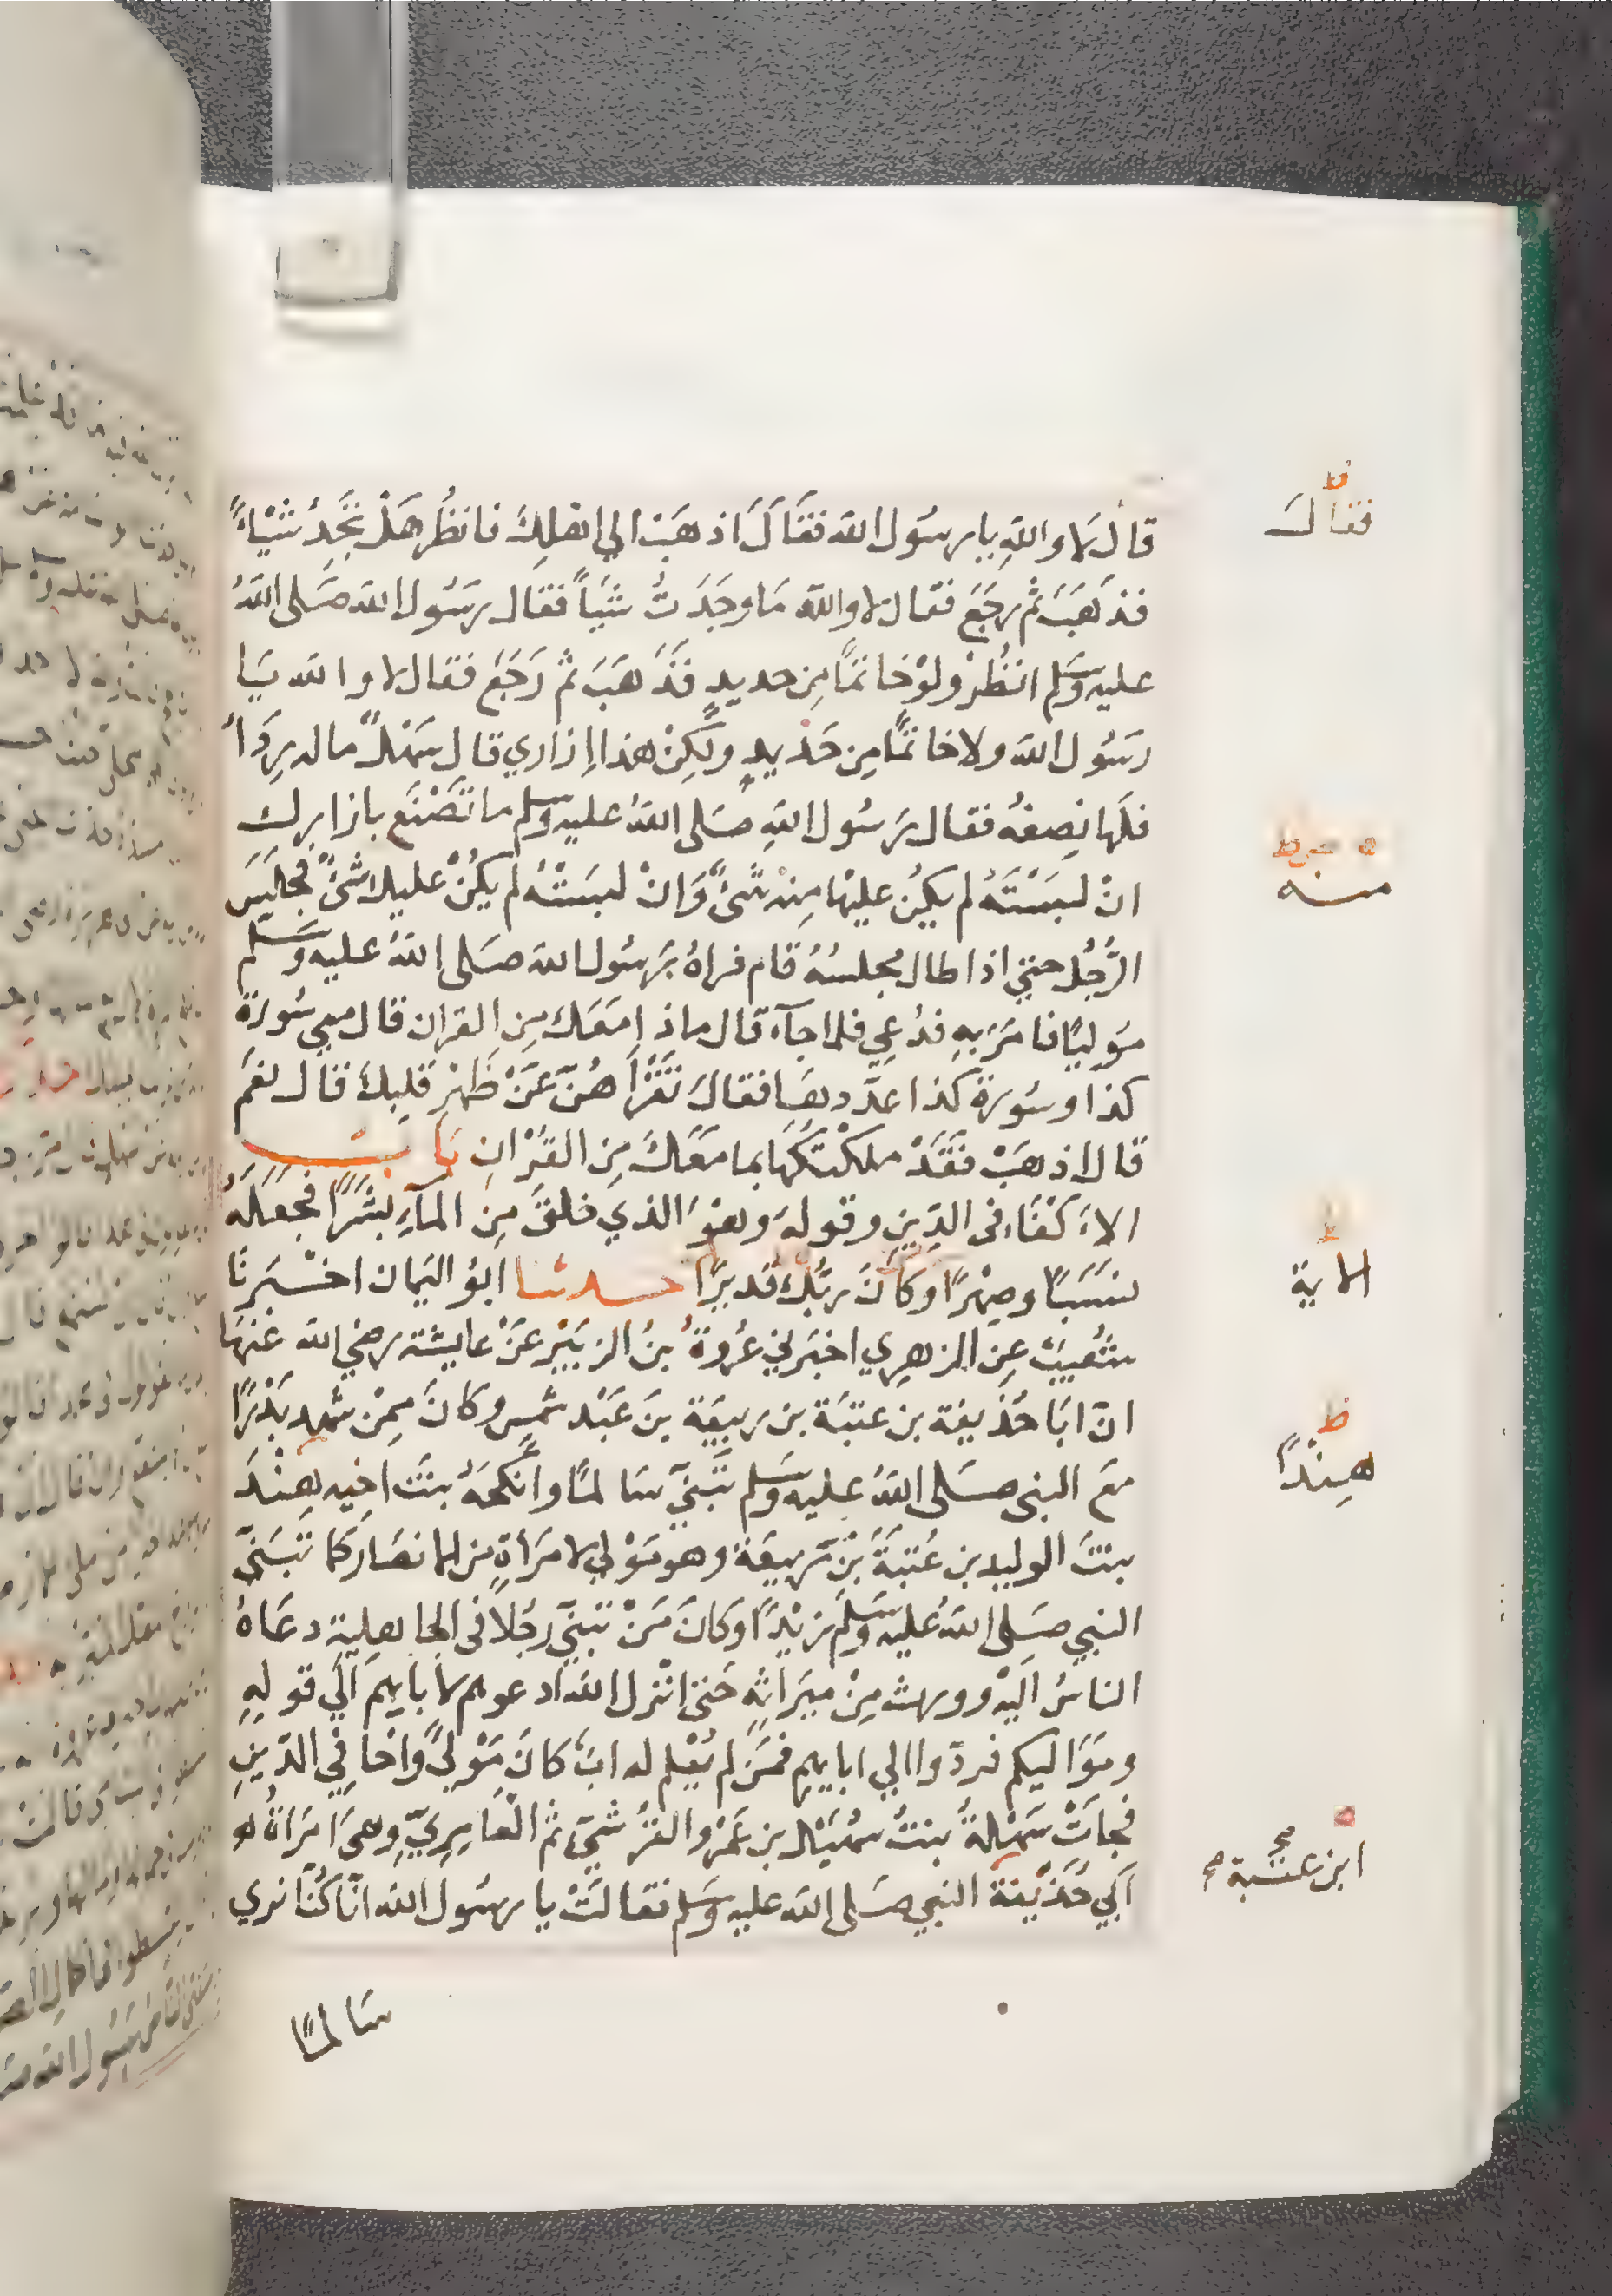 قال لا والله يا رسول الله فقال اذهب الي اهلك فانظر هل تجد شيأ
فذهب ثم رجع فقال لا والله ما وجدت شيأ فقال رسول الله صلى الله
عليه وسلم انظر ولو خاتما من حديد فذهب ثم رجع فقال لا والله يا
رسول الله ولا خاتما من حديد ولكن هذا ازاري قال سهل ماله رداً
فلها نصفه فقال رسول الله صلى الله عليه وسلم ما تصنع بازارك
ان لبسته لم يكن عليها منه شئ وان لبسته لم يكن عليك شئ فجلس
الرجل حتي اذا طال مجلسه قام فراه رسول الله صلى الله عليه وسلم
موليا فامر به فدعي فلما جآء قال ماذا معك من القران قال معي سورة
كذا وسورة كذا عددها فقال تقراهن عن ظهر قلبك قال نعم
قال اذهب فقد ملكتكها بما معك من القران باب
الاكفاء في الدين وقوله وهو الذي خلق من المآء بشرا فجعله
نسبا وصهرا وكان ربك قديرا حدثنا ابو اليمان اخبرنا
شعيب عن الزهري اخبرني عروة بن الزبير عن عايشة رضي الله عنها
ان ابا حذيفة بن عتبة بن ربيعة بن عبد شمس وكان ممن شهد بدرا
مع النبي صلى الله عليه وسلم تبني سالما وانكحه بنت اخيه هند
بنت الوليد بن عتبة بن ربيعة وهو مولي لامراة من الانصار كما تبني
النبي صلى الله عليه وسلم زيدا وكان من تبني رجلا في الجاهلية دعاه
الناس اليه وورث من ميراثه حتي انزل الله ادعوهم لابايهم الي قوله
ومواليكم فردوا الي ابايهم فمن لم يعلم له اب كان مولي واخا في الدين
فجات سهلة بنت سهيل بن عمرو القرشي ثم العامري وهي امراة
ابي حذيفة النبي صلى الله عليه وسلم فقالت يا رسول الله انا كنا نري
سالما
فقال
منه
الاية
هندا
ابن عتبة